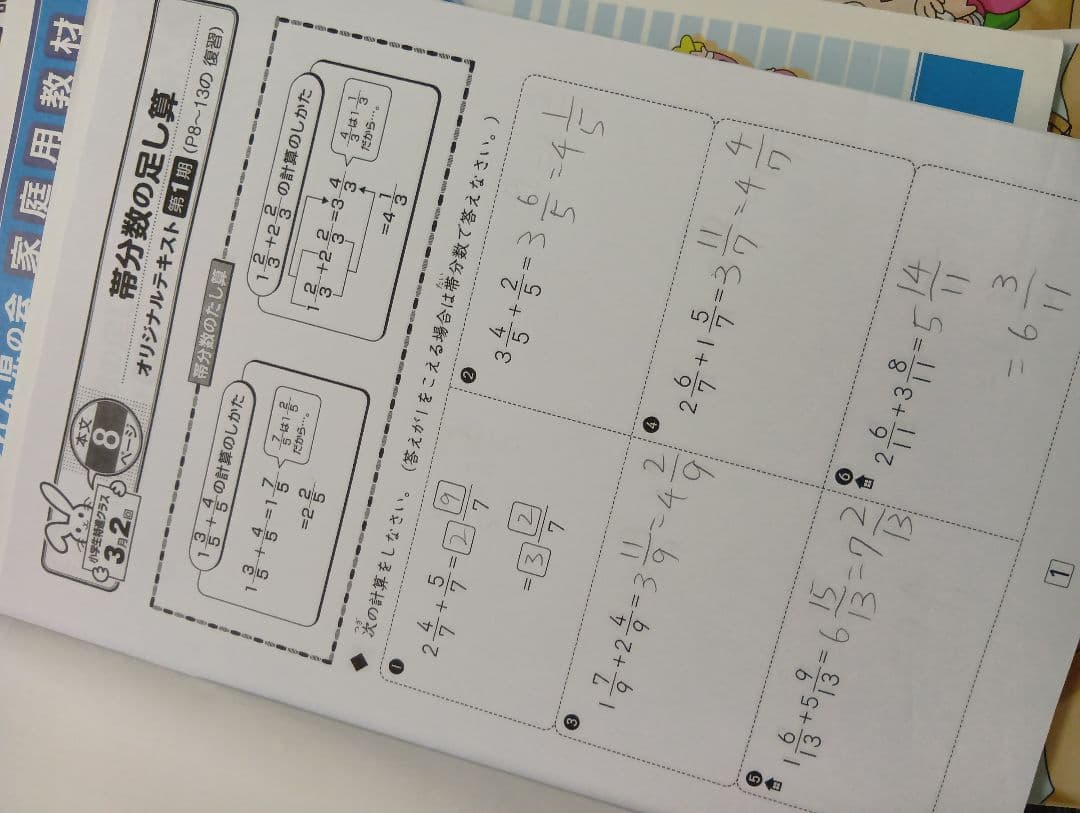 家庭用教材
小学生特編クラス
3月2回
本文
8
ページ
帯分数の足し算
オリジナルテキスト 第1期 (P8〜13の 復習)
帯分数のたし算
1 3/5 + 4/5 の計算のしかた
1 3/5 + 4/5 = 1 7/5
= 2 2/5
7/5は1 2/5
だから…。
1 2/3 + 2 2/3 の計算のしかた
1 2/3 + 2 2/3 = 3 4/3
= 4 1/3
4/3は1 1/3
だから…。
◆ 次の計算をしなさい。 (答えが1をこえる場合は帯分数で答えなさい。)
❶ 2 4/7 + 5/7 = 2 9/7
= 3 2/7
❷ 3 4/5 + 2/5 = 3 6/5 = 4 1/5
❸ 1 7/9 + 2 4/9 = 3 11/9 = 4 2/9
❹ 2 6/7 + 1 5/7 = 3 11/7 = 4 4/7
❺ 1 6/13 + 5 9/13 = 6 15/13 = 7 2/13
❻ 2 6/11 + 3 8/11 = 5 14/11
= 6 3/11
1